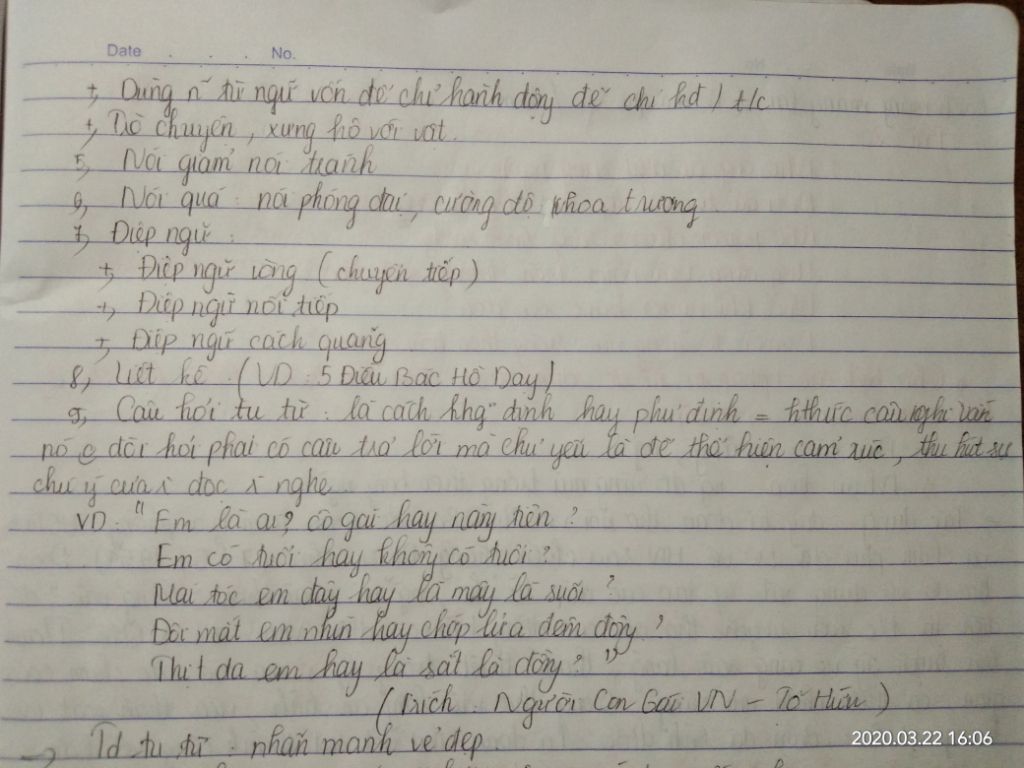 Date No.
+, Dùng ~ từ ngữ vốn để chỉ hành động để chỉ hđ / t/c
+, Trò chuyện, xưng hô với vật.
5, Nói giảm nói tránh
6, Nói quá : nói phóng đại, cường độ khoa trương
7, Điệp ngữ :
+, Điệp ngữ vòng (chuyển tiếp)
+, Điệp ngữ nối tiếp
+, Điệp ngữ cách quãng
8, Liệt kê. (VD : 5 Điều Bác Hồ Dạy)
9, Câu hỏi tu từ : là cách khg định hay phủ định = hthức câu nghi vấn
nó đòi hỏi phải có câu trả lời mà chủ yếu là để thể hiện cảm xúc, thu hút sự
chú ý của đọc nghe
VD : "Em là ai? cô gái hay nàng tiên?
Em có tuổi hay không có tuổi?
Mái tóc em đây hay là mây là suối?
Đôi mắt em nhìn hay chớp lửa đêm đông?
Thịt da em hay là sắt là đồng?"
(Trích : Người Con Gái VN - Tố Hữu)
-> Td tu từ : nhấn mạnh vẻ đẹp
2020.03.22 16:06